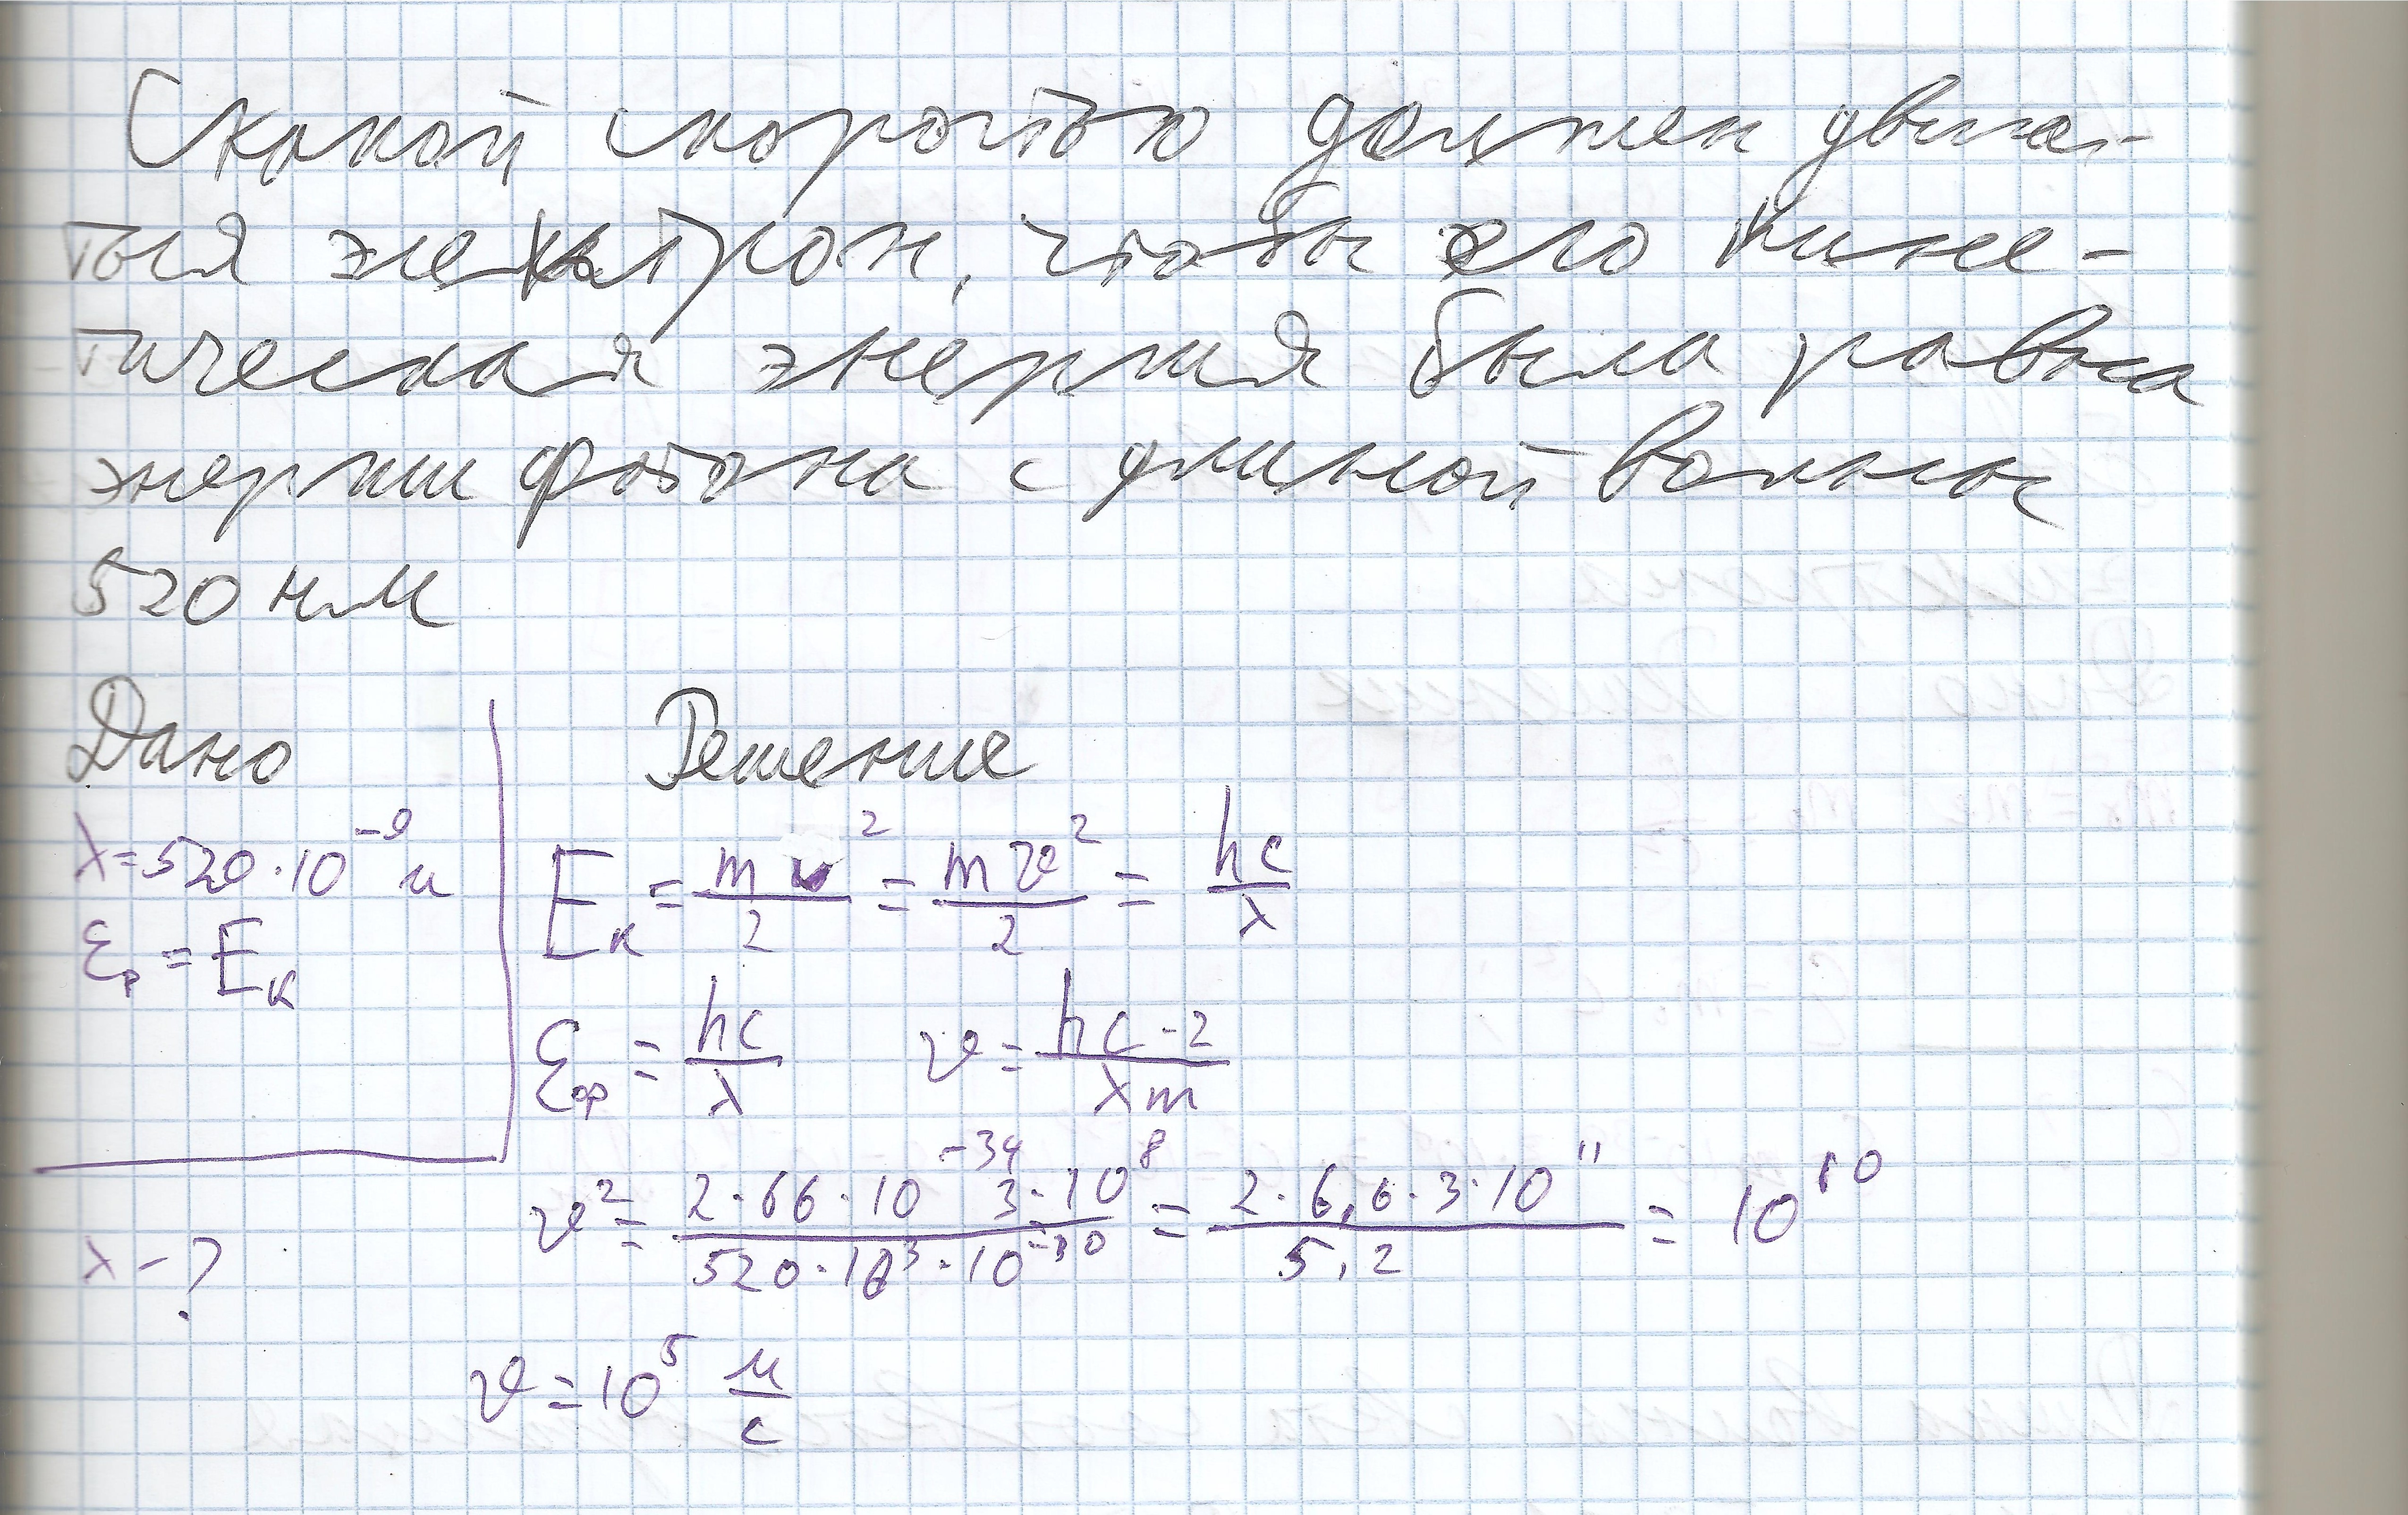 С какой скоростью должен двига-
ться электрон, чтобы его кине-
тическая энергия была равна
энергии фотона с длиной волны
520 нм
Дано
Решение
λ=520·10⁻⁹ м
Eₖ = mv²/2 = mv²/2 = hc/λ
εφ = Eₖ
εφ = hc/λ v = hc·2/λm
v² = 2·66·10⁻³⁴ 3·10⁸/520·10³·10⁻³⁰ = 2·6,6·3·10¹¹/5,2 = 10¹⁰
λ-?
v = 10⁵ м/с